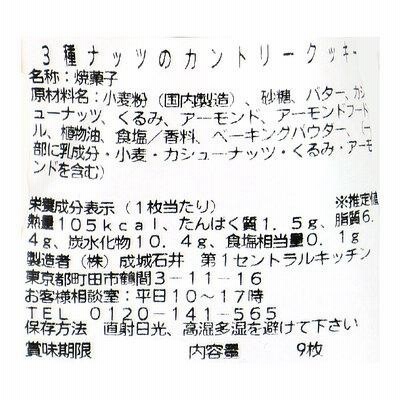 3種ナッツのカントリークッキー
名称：焼菓子
原材料名：小麦粉（国内製造）、砂糖、バター、カシ
ューナッツ、くるみ、アーモンド、アーモンドプード
ル、植物油、食塩／香料、ベーキングパウダー、（一
部に乳成分・小麦・カシューナッツ・くるみ・アーモ
ンドを含む）
栄養成分表示（1枚当たり） ※推定値
熱量105kcal、たんぱく質1.5g、脂質6.
4g、炭水化物10.4g、食塩相当量0.1g
製造者（株）成城石井 第1セントラルキッチン
東京都町田市鶴間3-11-16
お客様相談室：平日10～17時
TEL 0120-141-565
保存方法 直射日光、高温多湿を避けて下さい
賞味期限 内容量 9枚